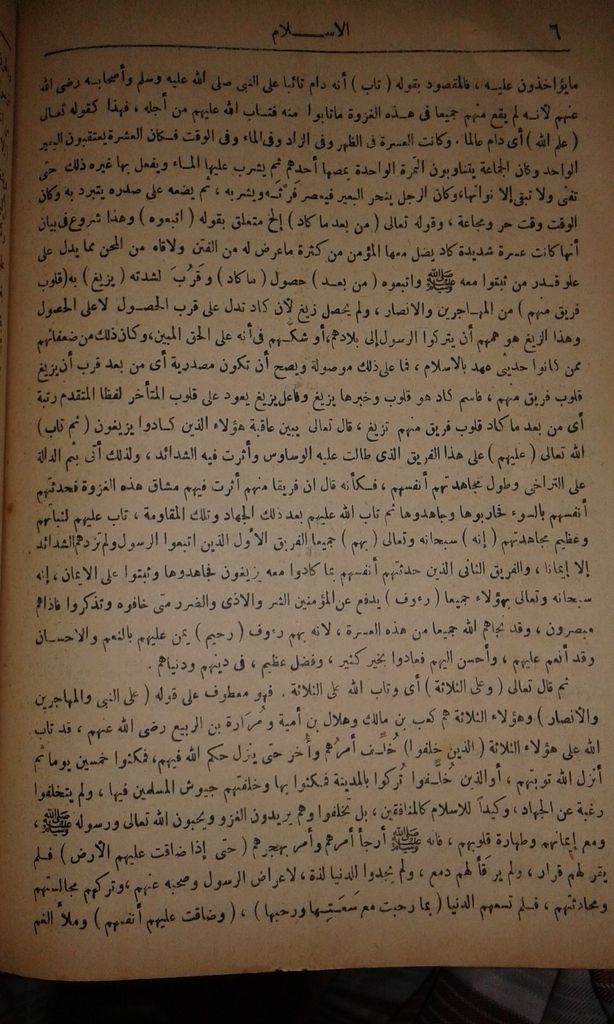 ٦
الاسلام
مايؤاخذون عليه ، فالمقصود بقوله ( تاب ) أنه دام تائبا على النبى صلى الله عليه وسلم وأصحابه رضى الله
عنهم لأنه لم يقع منهم جميعا فى هذه الغزوة ماتابوا منه فتاب الله عليهم من أجله ، فهذا كقوله تعالى
( علم الله ) أى دام عالما . وكانت العسرة فى الظهر وفى الزاد وفى الماء وفى الوقت فكان العشرة يعتقبون البعير
الواحد وكان الجماعة يتناوبون التمرة الواحدة يمصها أحدهم ثم يشرب عليها الماء ويفعل بها غيره ذلك حتى
تفنى ولا تبقى إلا نواتها، وكان الرجل ينحر البعير فيعصر فرثه ويشربه ، ثم يضعه على صدره يتبرد به وكان
الوقت وقت حر ومجاعة ، وقوله تعالى ( من بعد ما كاد ) إلخ متعلق بقوله ( اتبعوه ) وهذا شروع فى بيان
أنها كانت عسرة شديدة كاد يضل معها المؤمن من كثرة ماعرض له من الفتن ولاقاه من المحن مما يدل على
علو قدر من ثبتوا معه ﷺ واتبعوه ( من بعد ) حصول ( ما كاد ) وقرب لشدته ( يزيغ ) به (قلوب
فريق منهم ) من المهاجرين والانصار ، ولم يحصل زيغ لأن كاد تدل على قرب الحصول لا على الحصول
وهذا الزيغ هو همهم أن يتركوا الرسول إلى بلادهم، أو شكهم فى أنه على الحق المبين، وكان ذلك من ضعفائهم
ممن كانوا حديثى عهد بالاسلام ، فما على ذلك موصولة ويصح أن تكون مصدرية أى من بعد قرب أن يزيغ
قلوب فريق منهم ، فاسم كاد هو قلوب وخبرها يزيغ وفاعل يزيغ يعود على قلوب المتأخر لفظا المتقدم رتبة
أى من بعد ما كاد قلوب فريق منهم تزيغ ، قال تعالى يبين عاقبة هؤلاء الذين كادوا يزيغون ( ثم تاب )
الله تعالى ( عليهم ) على هذا الفريق الذى طالت عليه الوساوس وأثرت فيه الشدائد ، ولذلك أتى بثم الدالة
على التراخى وطول مجاهدتهم أنفسهم ، فكأنه قال ان فريقا منهم أثرت فيهم مشاق هذه الغزوة فحدثتهم
أنفسهم بالسوء فحاربوها وجاهدوها ثم تاب الله عليهم بعد ذلك الجهاد وتلك المقاومة ، تاب عليهم لثباتهم
وعظيم مجاهدتهم ( إنه ) سبحانه وتعالى ( بهم ) جميعا الفريق الأول الذين اتبعوا الرسول ولم تزدهم الشدائد
إلا إيمانا ، والفريق الثانى الذين حدثتهم أنفسهم بما كادوا معه يزيغون فجاهدوها وثبتوا على الايمان ، إنه
سبحانه وتعالى بهؤلاء جميعا ( رءوف ) يدفع عن المؤمنين الشر والاذى والضرر متى خافوه وتذكروا فاذاهم
مبصرون ، وقد نجاهم الله جميعا من هذه العسرة ، لأنه بهم رءوف ( رحيم ) يمن عليهم بالنعم والاحسان
وقد أنعم عليهم ، وأحسن اليهم فعادوا بخير كثير ، وفضل عظيم ، فى دينهم ودنياهم .
ثم قال تعالى ( وعلى الثلاثة ) أى وتاب الله على الثلاثة . فهو معطوف على قوله ( على النبى والمهاجرين
والأنصار ) وهؤلاء الثلاثة هم كعب بن مالك وهلال بن أمية ومُرارة بن الربيع رضى الله عنهم ، قد تاب
الله على هؤلاء الثلاثة ( الذين خلفوا ) خُلِّف أمرهم وأُخر حتى ينزل حكم الله فيهم، فمكثوا خمسين يوما ثم
أنزل الله توبتهم ، أو الذين خُلِّفوا تُركوا بالمدينة فمكثوا بها وخلفتهم جيوش المسلمين فيها ، ولم يتخلفوا
رغبة عن الجهاد ، وكيدا للاسلام كالمنافقين ، بل تخلفوا وهم يريدون الغزو ويحبون الله تعالى ورسوله ﷺ ،
ومع إيمانهم وطهارة قلوبهم ، فانه ﷺ أرجأ أمرهم وأمر بهجرهم ( حتى إذا ضاقت عليهم الأرض ) فلم
يقر لهم قرار ، ولم يرقأ لهم دمع ، ولم يجدوا للدنيا لذة ، لاعراض الرسول وصحبه عنهم ، وتركهم مجالستهم
ومحادثتهم ، فلم تسعهم الدنيا ( بما رحبت مع سَعَتها ورحبها ) ، ( وضاقت عليهم أنفسهم ) وملأ الغم